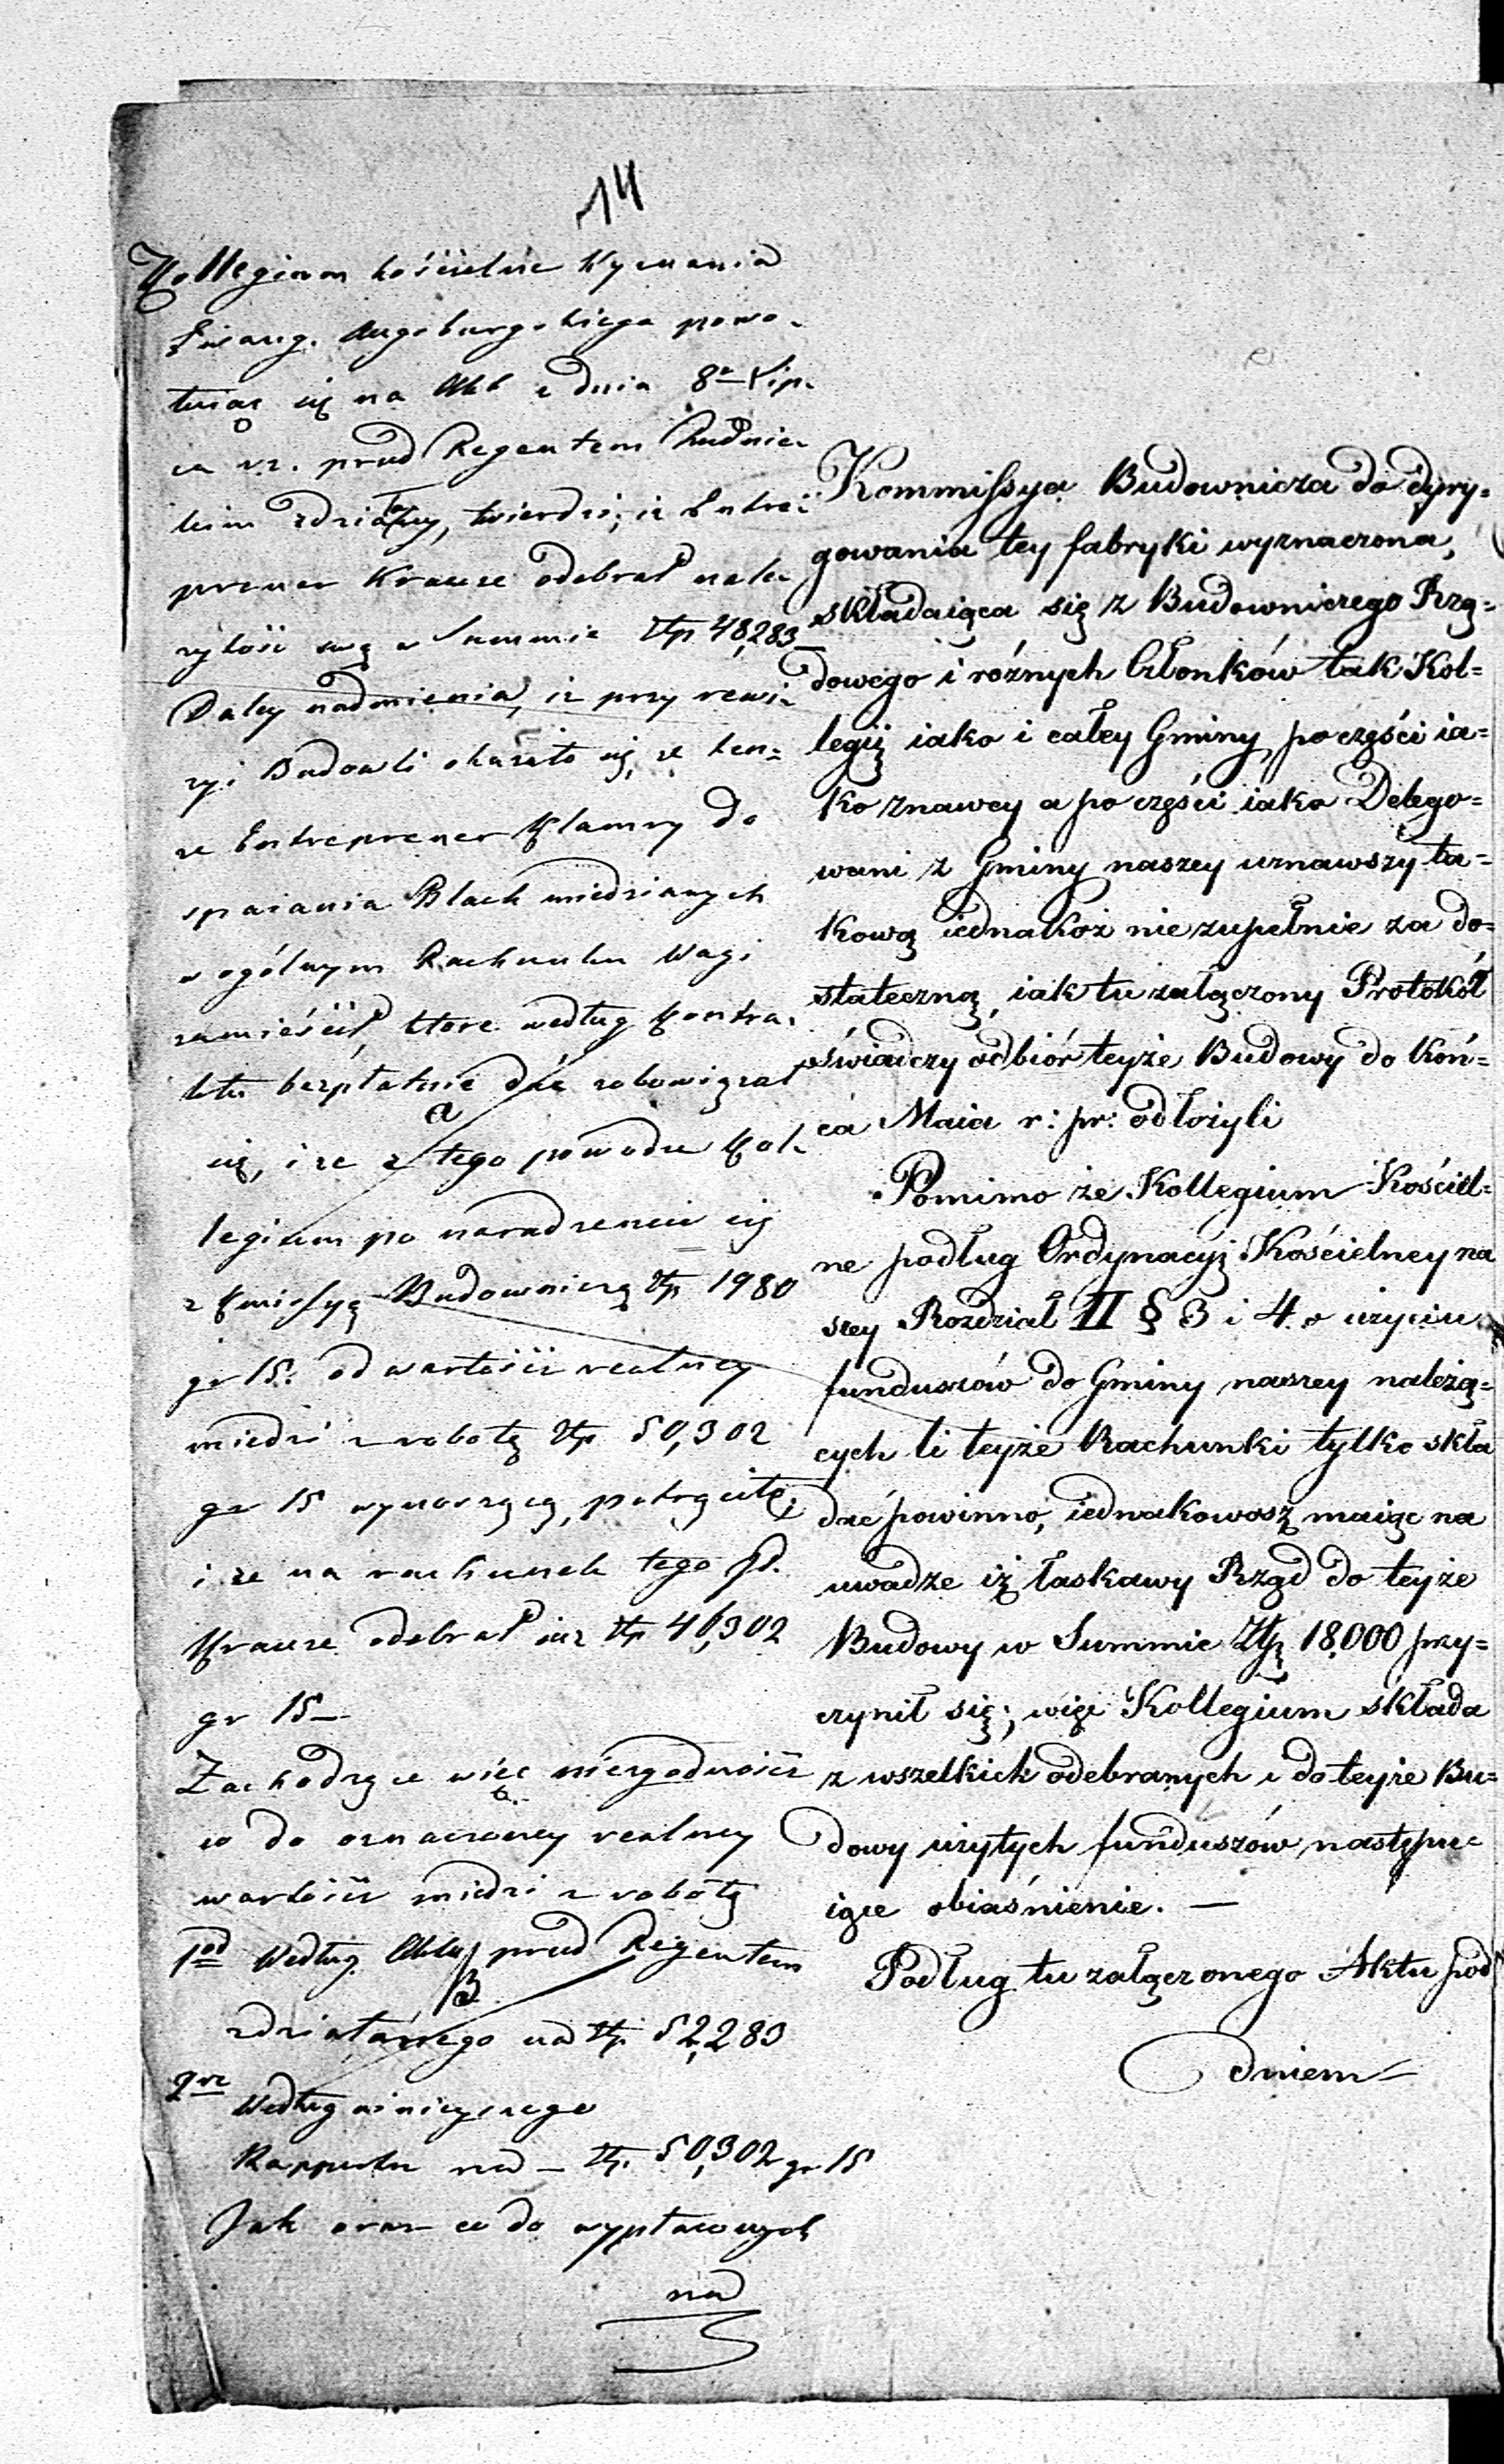 14
Kollegium kościelne Wyznania
Ewang. Augsburgskiego powo-
łuiąc się na Akt z dnia 8º Lip-
ca r.z. przed Regentem Rudnic-
kim zdziałany, twierdzi, iż Entre-
prener Krause odebrał nale-
żytość swą w Summie Złp 48,283
Daley nadmienia, iż przy rewi-
zyi Budowli okazało się, że ten-
że Entreprener Klamry do
spaiania Blach miedzianych
w ogólnym Rachunku Wagi
zamieścił, które według Kontra-
ktu bezpłatnie dać zobowiązał
a
się, i że z tego powodu Kol-
legium po naradzeniu się
z Kmissyą Budowniczą Złp 1980
gr 15. od wartości realney
miedzi z robotą Złp 50,302
gr 15 wynoszącą, potrąciło;
i że na rachunek tego P.
Krause odebrał iuż Złp 46,302
gr 15 —
Zachodzące więc niezgodności
co do oznaczoney realney
wartości miedzi z robotą
1od Według Aktu przed Regentem
B
zdziałanego na Złp 52,283
2re Według ninieyszego
Rapportu na — Złp. 50,302 gr 15
Jak oraz co do wypłaconych
na
Kommissya Budownicza do dyry-
gowania tey fabryki wyznaczona,
składaiąca się z Budowniczego Rzą-
dowego i różnych Członków tak Kol-
legii iako i całey Gminy, po części ia-
ko znawcy a po części iako Delego-
wani z Gminy naszey uznawszy ta-
kową iednakoż nie zupełnie za do-
stateczną, iak tu załączony Protokół
świadczy odbiór teyże Budowy do koń-
ca Maia r: pr: odłożyli
Pomimo że Kollegium Kościel-
ne podług Ordynacyi Kościelney na
szey Rozdział II § 3 i 4. o użyciu
funduszów do Gminy naszey należą-
cych li teyże Rachunki tylko skła
dać powinno, iednakowosz maiąc na
uwadze iż łaskawy Rząd do teyże
Budowy w Summie Złp 18,000 przy-
czynił się; więc Kollegium składa
z wszelkich odebranych i do teyże Bu-
dowy użytych funduszów następu-
iące obiaśnienie. —
Podług tu załączonego Aktu pod
dniem